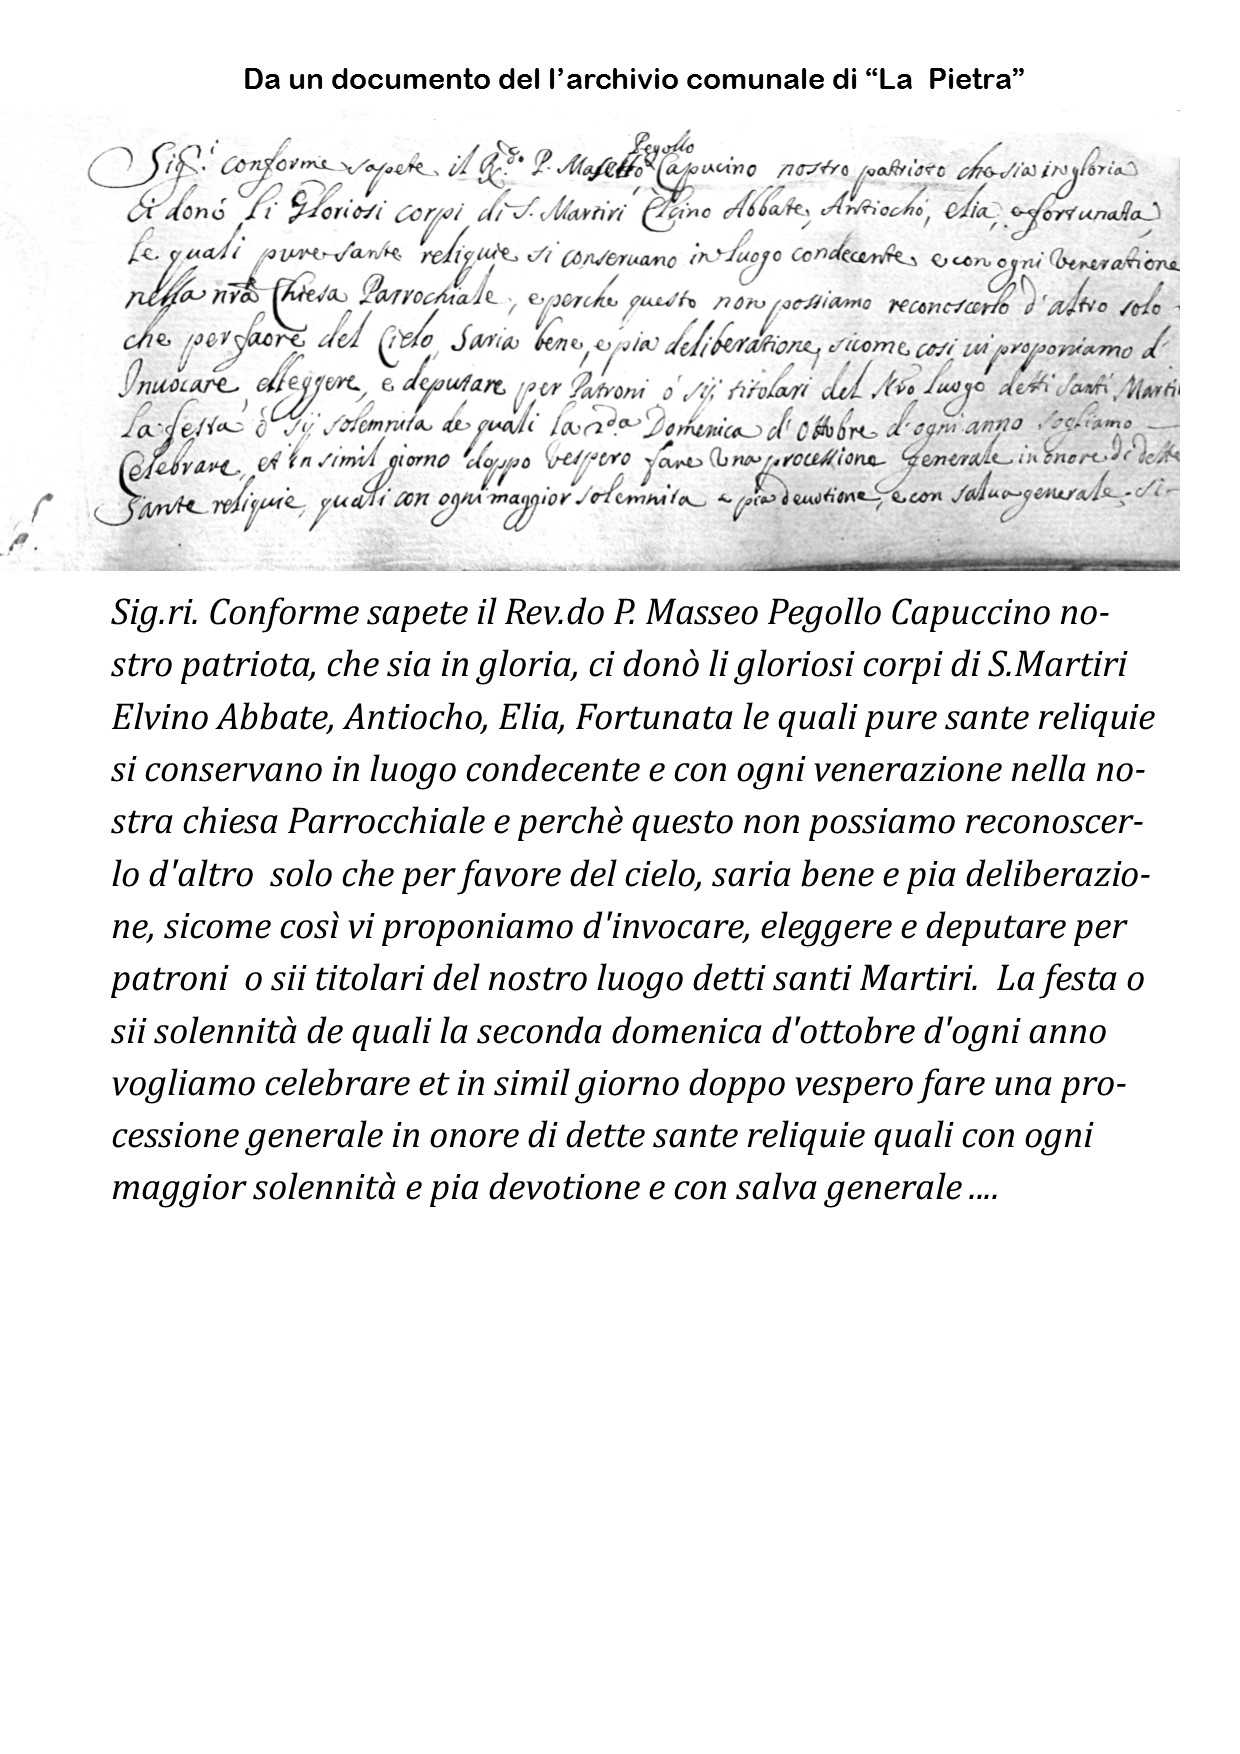 Da un documento del l’archivio comunale di “La Pietra”
Pegollo
Sig.i conforme sapete il R.do P. Capucino nostro patrioto che sia in gloria
Ci donò li Gloriosi corpi di S. Martiri Elcino Abbate, Antiocho, elia, e fortunata
Le quali pure sante reliquie si conseruano in luogo condecente, e con ogni Veneratione
nella nrã Chiesa Parrochiale, e perche questo non possiamo reconoscerlo d'altro solo
che per faore del Cielo, Saria bene, e pia deliberatione, sicome così ui proponiamo d'
Inuocare, elleggere, e deputare per Patroni ò sij titolari del Nrõ luogo detti Santi Martiri
La festa ò sij solemnita de quali la 2.da Domenica d'ottobre d'ogni anno vogliamo
Celebrare, et in simil giorno doppo Vespero fare Una processione generale in onore di dette
Sante reliquie, quali con ogni maggior solemnita e pia deuotione, e con salua generale. Si-
Sig.ri. Conforme sapete il Rev.do P. Masseo Pegollo Capuccino no-
stro patriota, che sia in gloria, ci donò li gloriosi corpi di S.Martiri
Elvino Abbate, Antiocho, Elia, Fortunata le quali pure sante reliquie
si conservano in luogo condecente e con ogni venerazione nella no-
stra chiesa Parrocchiale e perchè questo non possiamo reconoscer-
lo d'altro solo che per favore del cielo, saria bene e pia deliberazio-
ne, sicome così vi proponiamo d'invocare, eleggere e deputare per
patroni o sii titolari del nostro luogo detti santi Martiri. La festa o
sii solennità de quali la seconda domenica d'ottobre d'ogni anno
vogliamo celebrare et in simil giorno doppo vespero fare una pro-
cessione generale in onore di dette sante reliquie quali con ogni
maggior solennità e pia devotione e con salva generale ....